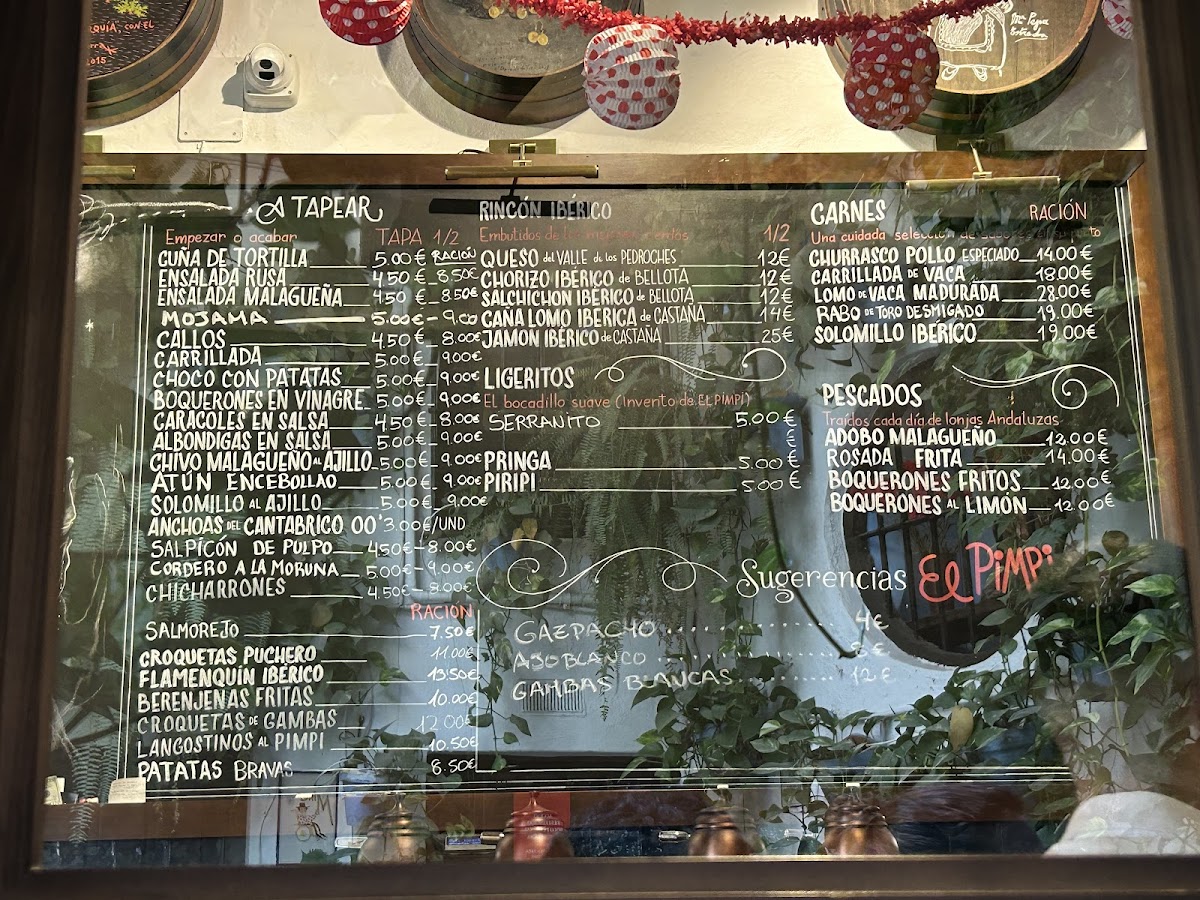 QUÍA, CON EL
2015
Mª Pepa
A TAPEAR
Empezar o acabar TAPA 1/2
RACIÓN
CUÑA DE TORTILLA 5.00€
ENSALADA RUSA 4.50€ 8.50€
ENSALADA MALAGUEÑA 4.50€ 8.50€
MOJAMA 5.00€ - 9.00
CALLOS 4.50€ - 8.00€
CARRILLADA 5.00€ - 9.00€
CHOCO CON PATATAS 5.00€ - 9.00€
BOQUERONES EN VINAGRE 5.00€ - 9.00€
CARACOLES EN SALSA 4.50€ - 8.00€
ALBONDIGAS EN SALSA 5.00€ - 9.00€
CHIVO MALAGUEÑO AL AJILLO 5.00€ - 9.00€
ATÚN ENCEBOLLAO 5.00€ - 9.00€
SOLOMILLO AL AJILLO 5.00€ - 9.00€
ANCHOAS DEL CANTABRICO 00 3.00€/UND
SALPICÓN DE PULPO 4.50€ - 8.00€
CORDERO A LA MORUNA 5.00€ - 9.00€
CHICHARRONES 4.50€ - 8.00€
RACIÓN
SALMOREJO 7.50€
CROQUETAS PUCHERO 11.00€
FLAMENQUÍN IBÉRICO 13.50€
BERENJENAS FRITAS 10.00€
CROQUETAS DE GAMBAS 12.00€
LANGOSTINOS AL PIMPI 10.50€
PATATAS BRAVAS 8.50€
RINCÓN IBÉRICO
Embutidos de 1/2
QUESO del VALLE de los PEDROCHES 12€
CHORIZO IBÉRICO de BELLOTA 12€
SALCHICHON IBÉRICO de BELLOTA 12€
CAÑA LOMO IBÉRICA de CASTAÑA 14€
JAMON IBÉRICO de CASTAÑA 25€
LIGERITOS
El bocadillo suave (Invento de EL PIMPI)
SERRANITO 5.00€
PRINGA 5.00€
PIRIPI 5.00€
CARNES RACIÓN
Una cuidada selección de
CHURRASCO POLLO ESPECIADO 14.00€
CARRILLADA DE VACA 18.00€
LOMO DE VACA MADURADA 28.00€
RABO DE TORO DESMIGADO 19.00€
SOLOMILLO IBÉRICO 19.00€
PESCADOS
Traídos cada día de lonjas Andaluzas
ADOBO MALAGUEÑO 12.00€
ROSADA FRITA 14.00€
BOQUERONES FRITOS 12.00€
BOQUERONES AL LIMÓN 12.00€
Sugerencias El PiMPi
GAZPACHO 4€
AJOBLANCO €
GAMBAS BLANCAS 12€